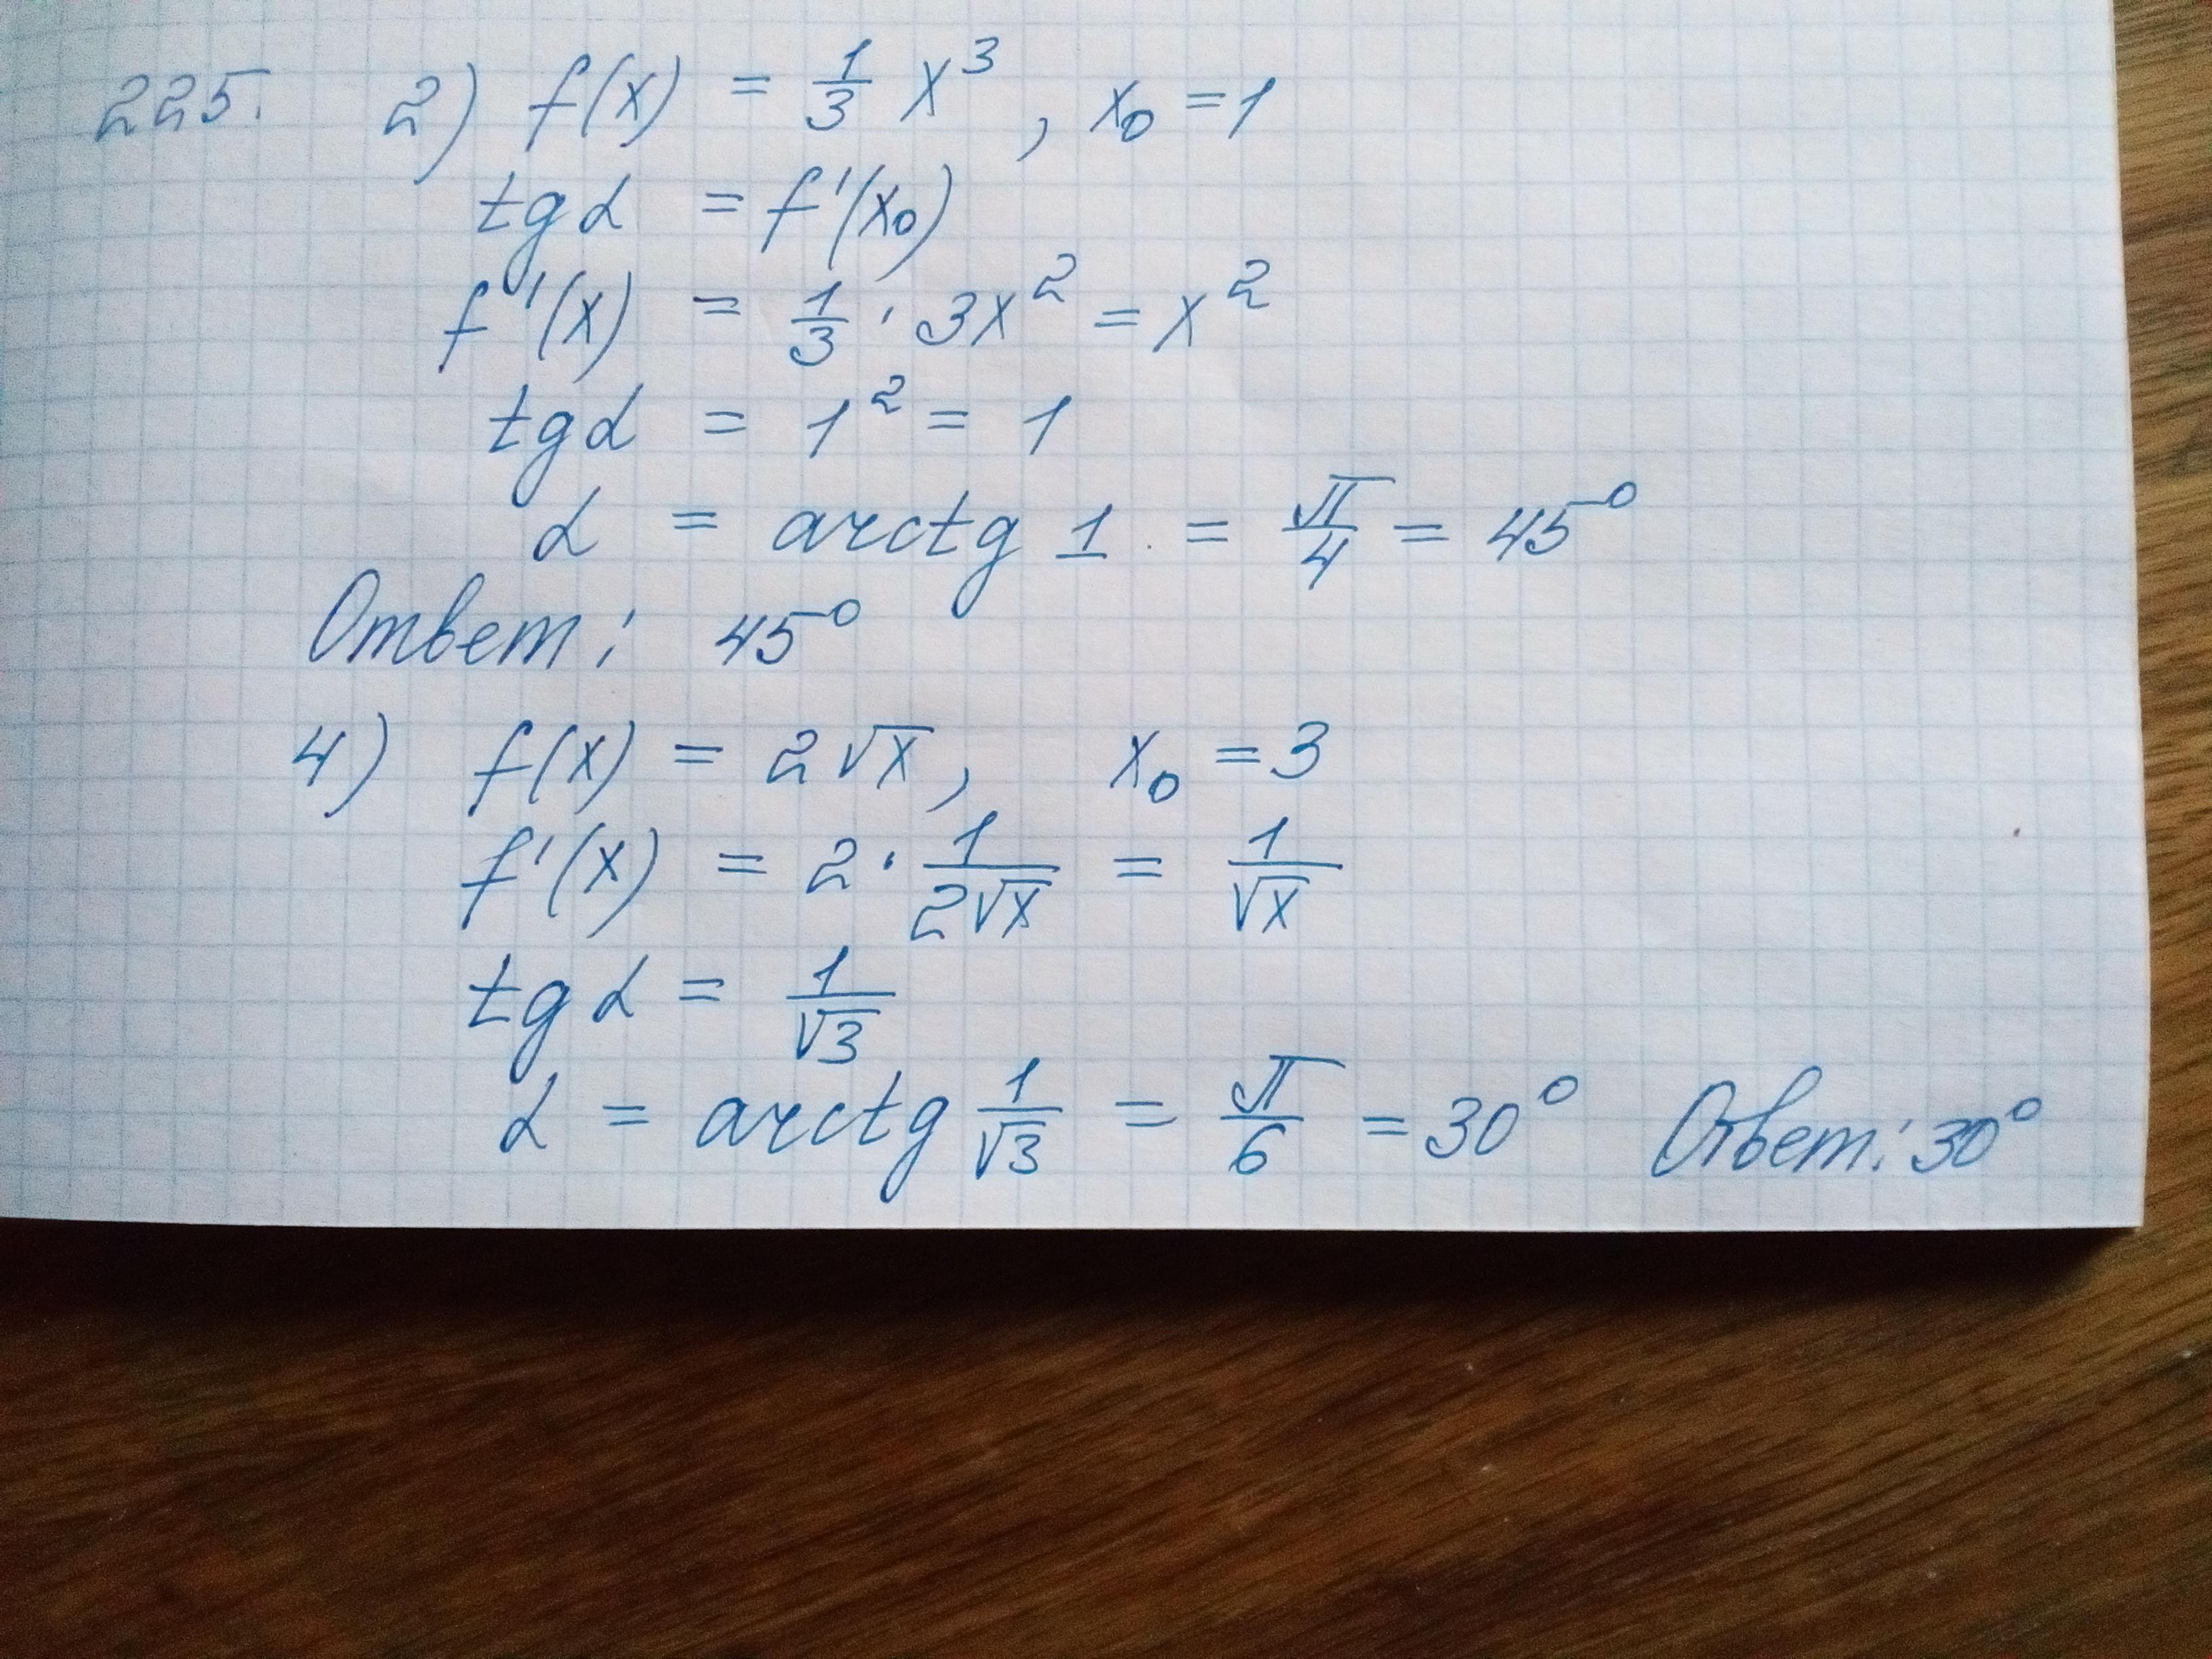 225. 2) f(x) = 1/3 x³, x₀ = 1
tg α = f'(x₀)
f'(x) = 1/3 · 3x² = x²
tg α = 1² = 1
α = arctg 1 = π/4 = 45°
Ответ: 45°
4) f(x) = 2√x, x₀ = 3
f'(x) = 2 · 1/(2√x) = 1/√x
tg α = 1/√3
α = arctg 1/√3 = π/6 = 30° Ответ: 30°